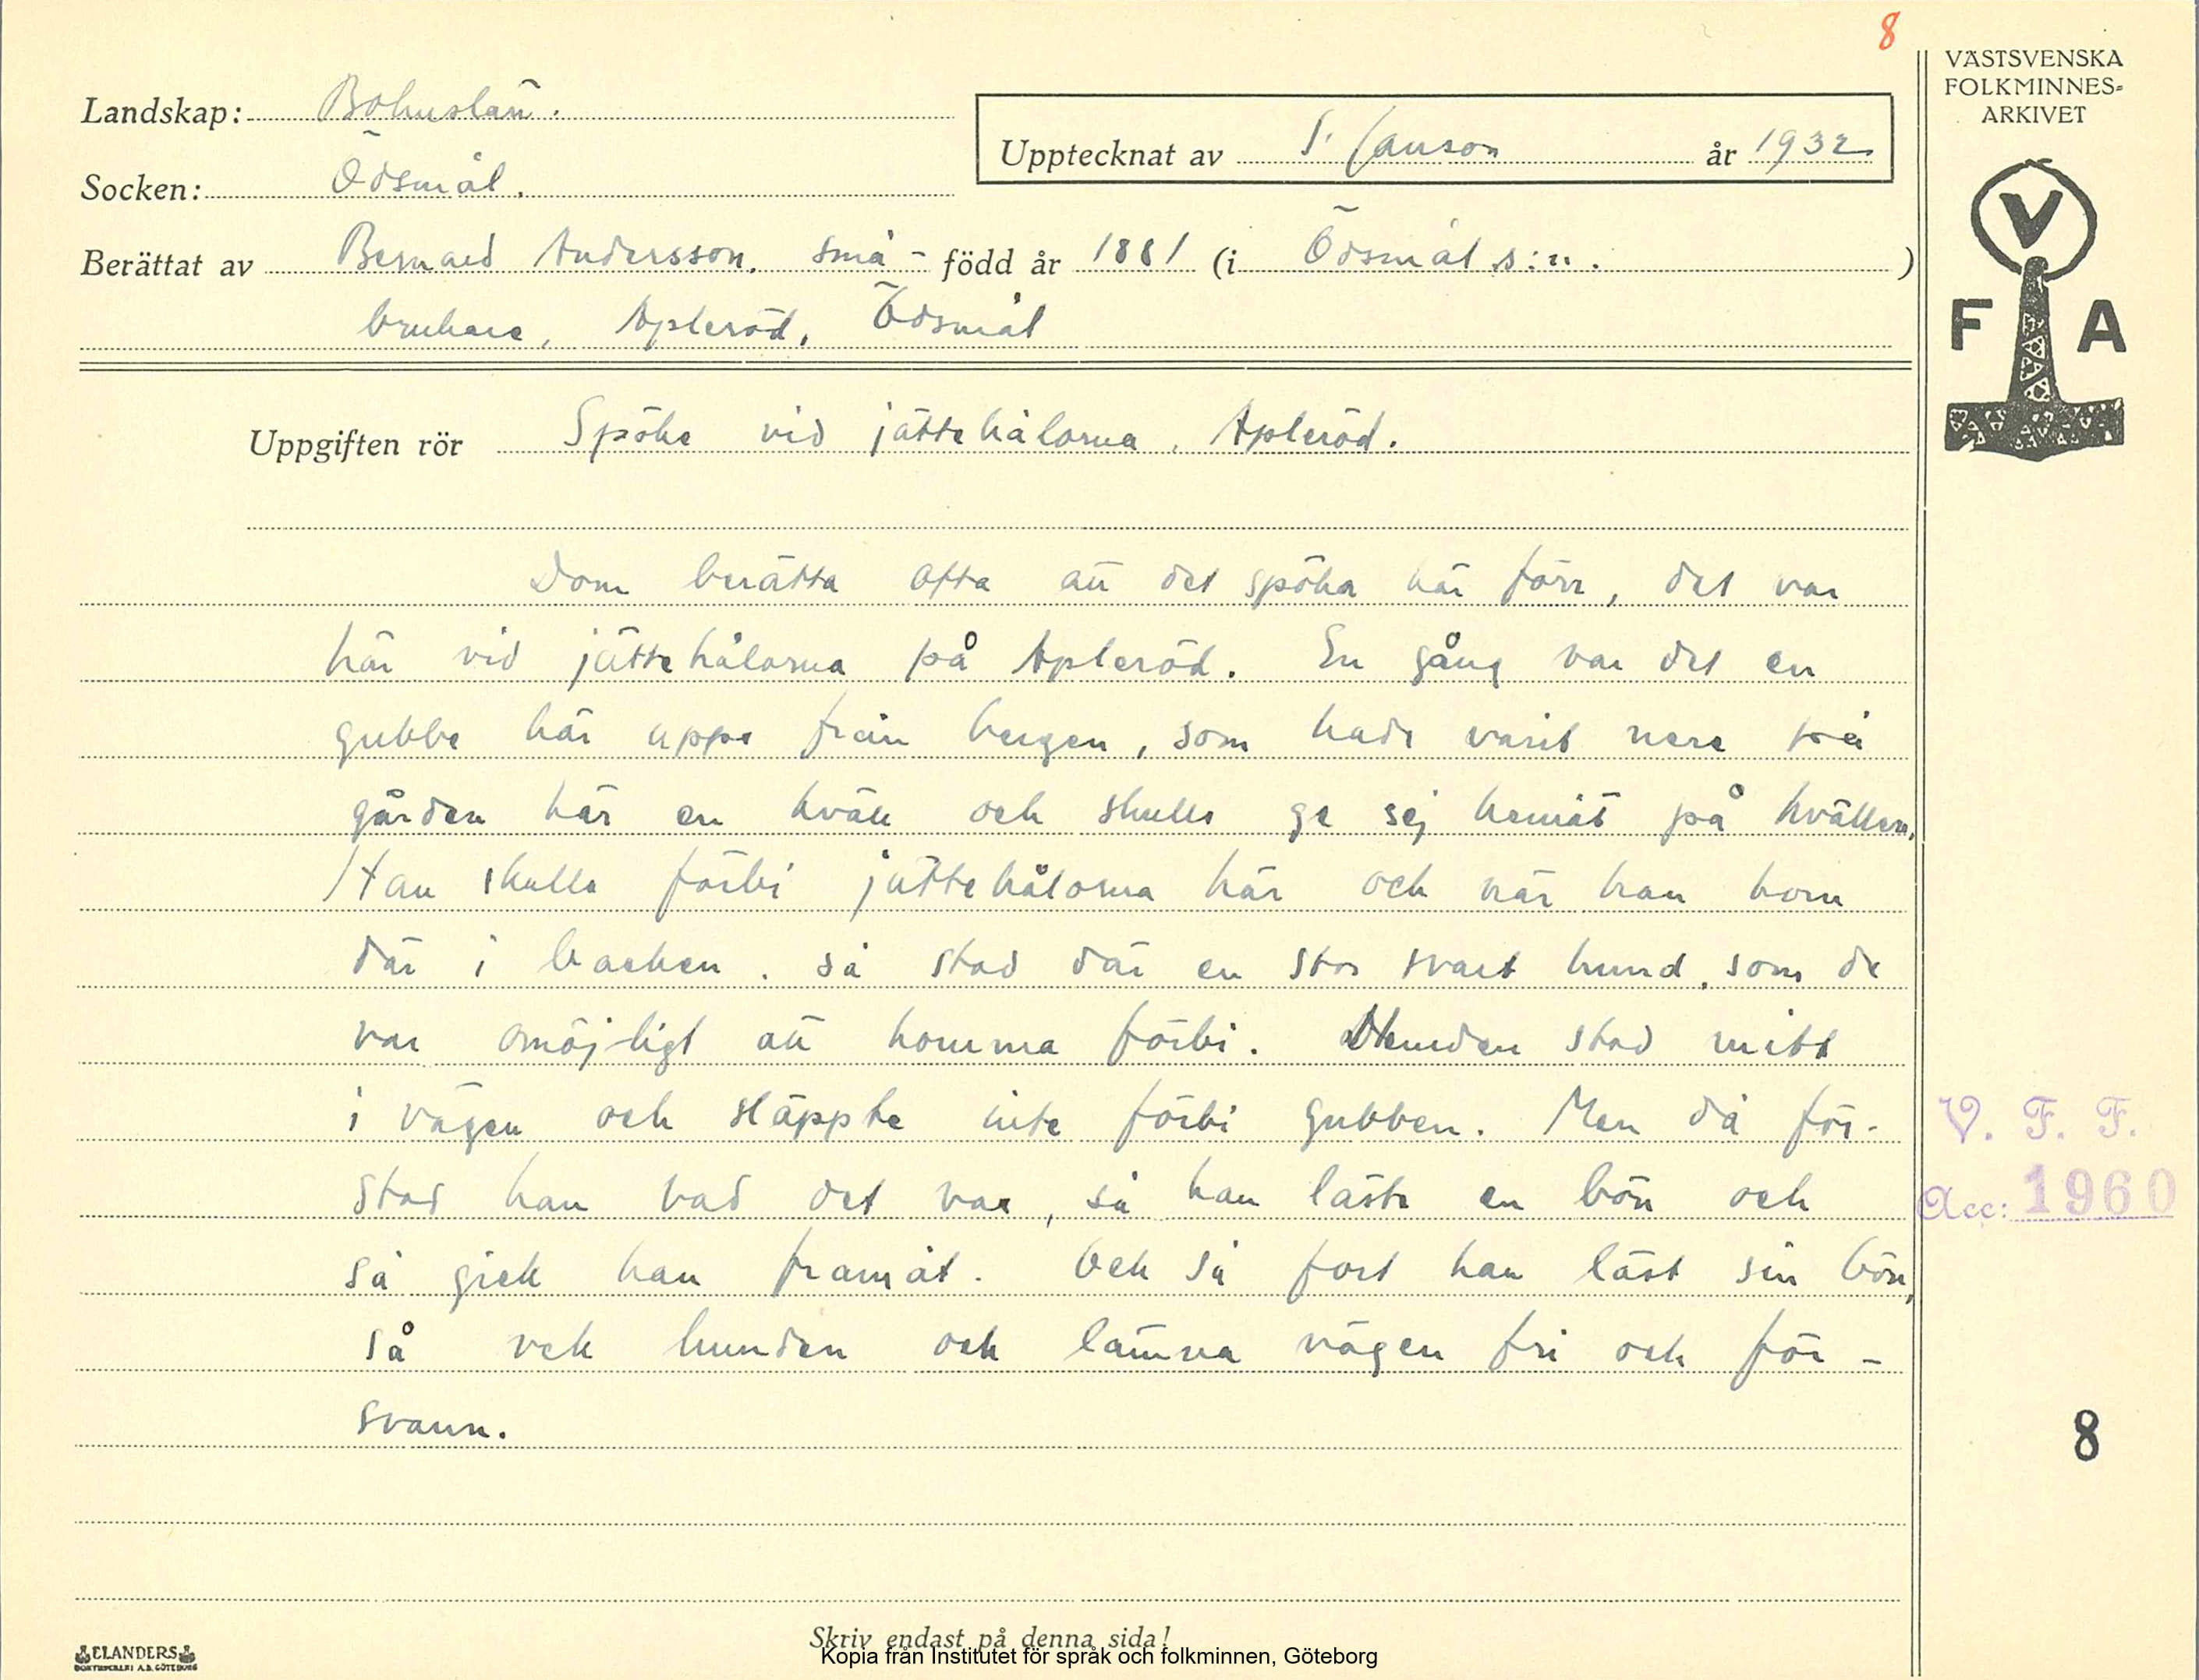 8
VÄSTSVENSKA
FOLKMINNES-
ARKIVET
Landskap: Bohuslän.
Upptecknat av S. Janson år 1932
Socken: Ödsmål.
Berättat av Bernard Andersson, små- född år 1881 (i Ödsmål s:n.)
brukare, Apleröd, Ödsmål
V
F A
Uppgiften rör Spöke vid jättehålorna, Apleröd.
Dom berätta ofta att det spöka här förr, det var
här vid jättehålorna på Apleröd. En gång var det en
gubbe här uppe från bergen, som hade varit nere på
gården här en kväll och skulle ge sej hemåt på kvällen.
Han skulle förbi jättehålorna här och när han kom
där i backen. så stod där en stor svart hund, som de
var omöjligt att komma förbi. Hunden stod mitt
i vägen och släppte inte förbi gubben. Men då för-
stod han vad det var, så han läste en bön och
så gick han framåt. Och så fort han läst sin bön,
så vek hunden och lämna vägen fri och för-
svann.
V. F. F.
Acc: 1960
8
Skriv endast på denna sida!
ELANDERS
BOKTRYCKERI A.B. GÖTEBORG
Kopia från Institutet för språk och folkminnen, Göteborg